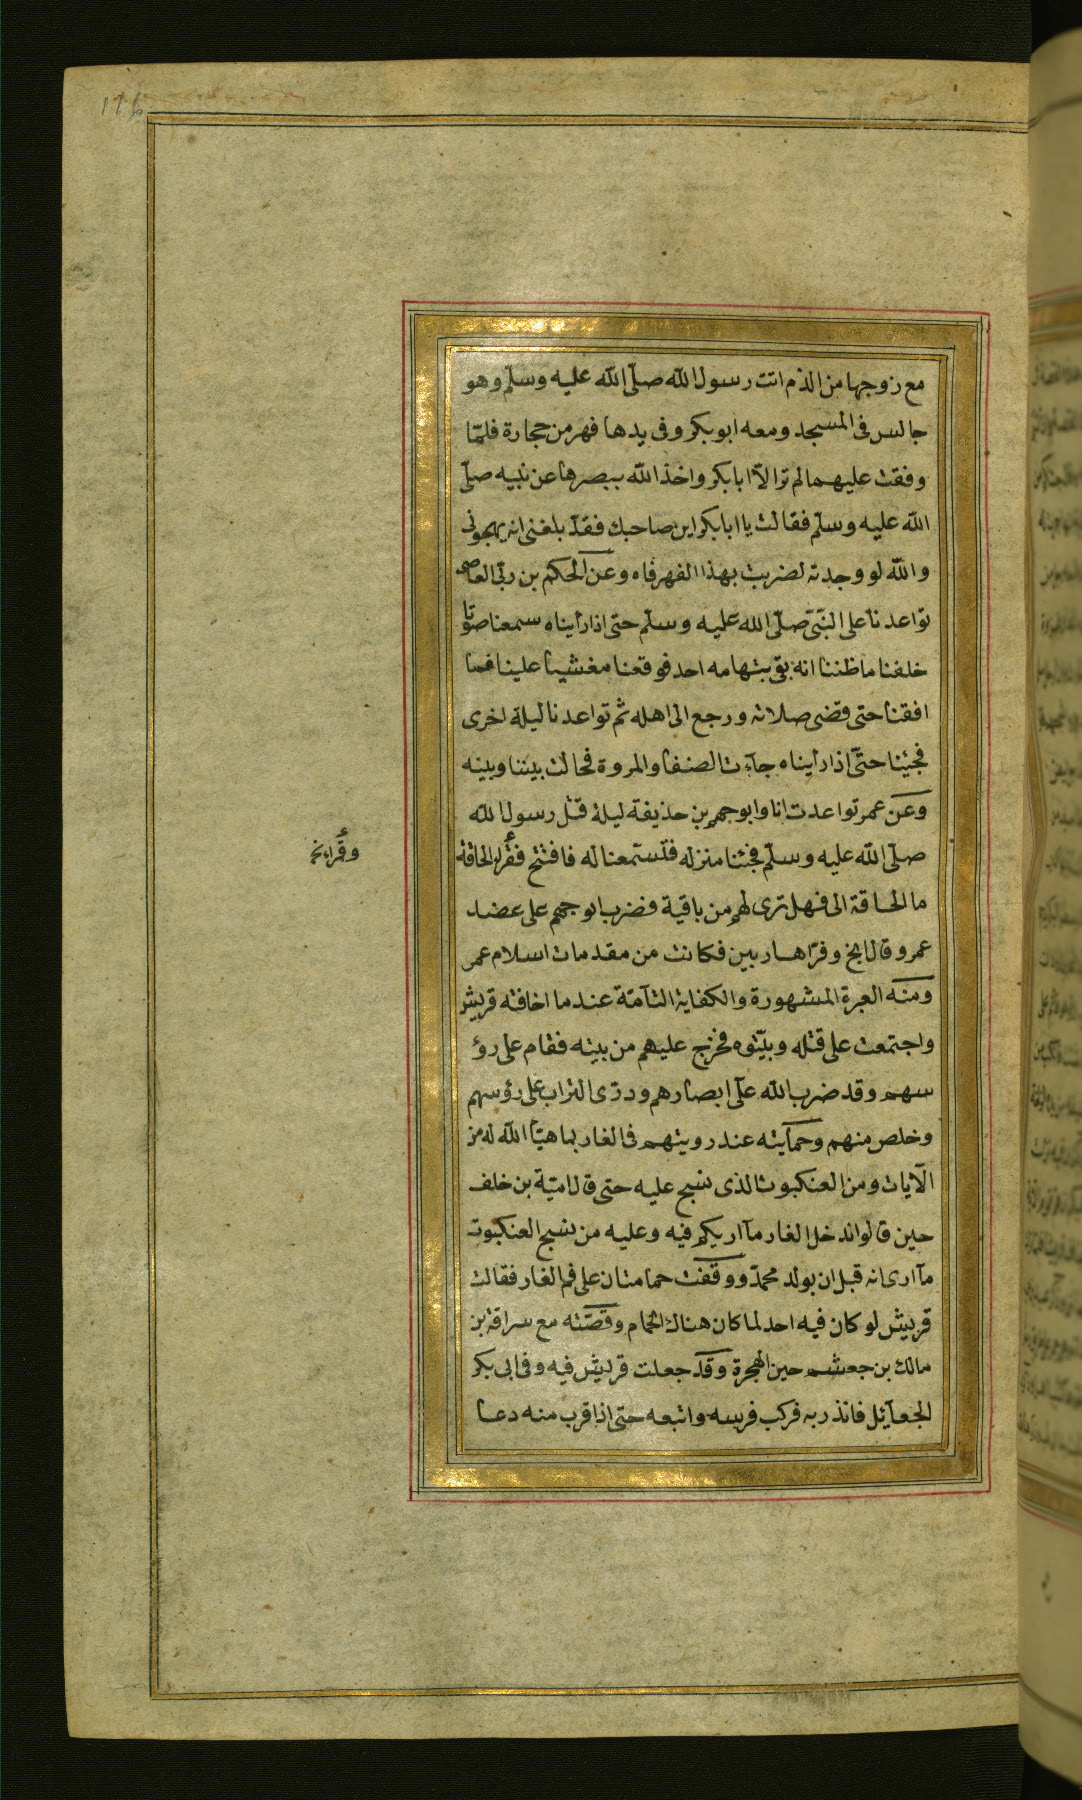 مع زوجها من الذم اتت رسول الله صلّى الله عليه وسلّم وهو
جالس فى المسجد ومعه ابوبكر وفى يدها فهر من حجارة فلمّا
وقفت عليهما لم تر الّا ابابكر واخذ الله ببصرها عن نبيه صلّى
الله عليه وسلّم فقالت يا ابابكر اين صاحبك فقد بلغنى انه يهجونى
والله لو وجدته لضربت بهذا الفهر فاه وعن الحكم بن ابى العاص
تواعدنا على النّبىّ صلّى الله عليه وسلّم حتى اذا رأيناه سمعنا صوتا
خلفنا ما ظننا انه بقى بتهامه احد فوقعنا مغشيا علينا فما
افقنا حتى قضى صلاته ورجع الى اهله ثم تواعدنا ليلة اخرى
فجئينا حتّى اذا رأيناه جآءت الصفا والمروة فحالت بيننا وبينه
وعن عمر تواعدت انا وابوجهم بن حذيفة ليلة قتل رسول الله
صلّى الله عليه وسلّم فجئنا منزله فتسمعنا له فافتتح فقرأ الحاقة
ما الحاقة الى فهل ترى لهم من باقية فضرب ابوجهم على عضد
عمر وقال انج وفرّا هاربين فكانت من مقدمات اسلام عمر
ومنه العبرة المشهورة والكفاية التآمّة عندما اخافته قريش
واجتمعت على قتله وبيّتوه فخرج عليهم من بيته فقام على رؤ
سهم وقد ضرب الله على ابصارهم وذرى التراب على رؤسهم
وخلص منهم وحمآيته عند رويتهم فى الغار بما هيّأ الله له من
الآيات ومن العنكبوت الذى نسج عليه حتى قال اميّة بن خلف
حين قالوا ندخل الغار مآ اربكم فيه وعليه من نسج العنكبوت
مآ ارى انه قبل ان يولد محمّد ووقفت حمامتان على فم الغار فقالت
قريش لو كان فيه احد لما كان هناك الحمام وقصّته مع سراقة بن
مالك بن جعشم حين الهجرة وقد جعلت قريش فيه وفى ابى بكر
الجعآيل فانذر به فركب فرسه واتبعه حتى اذا قرب منه دعا